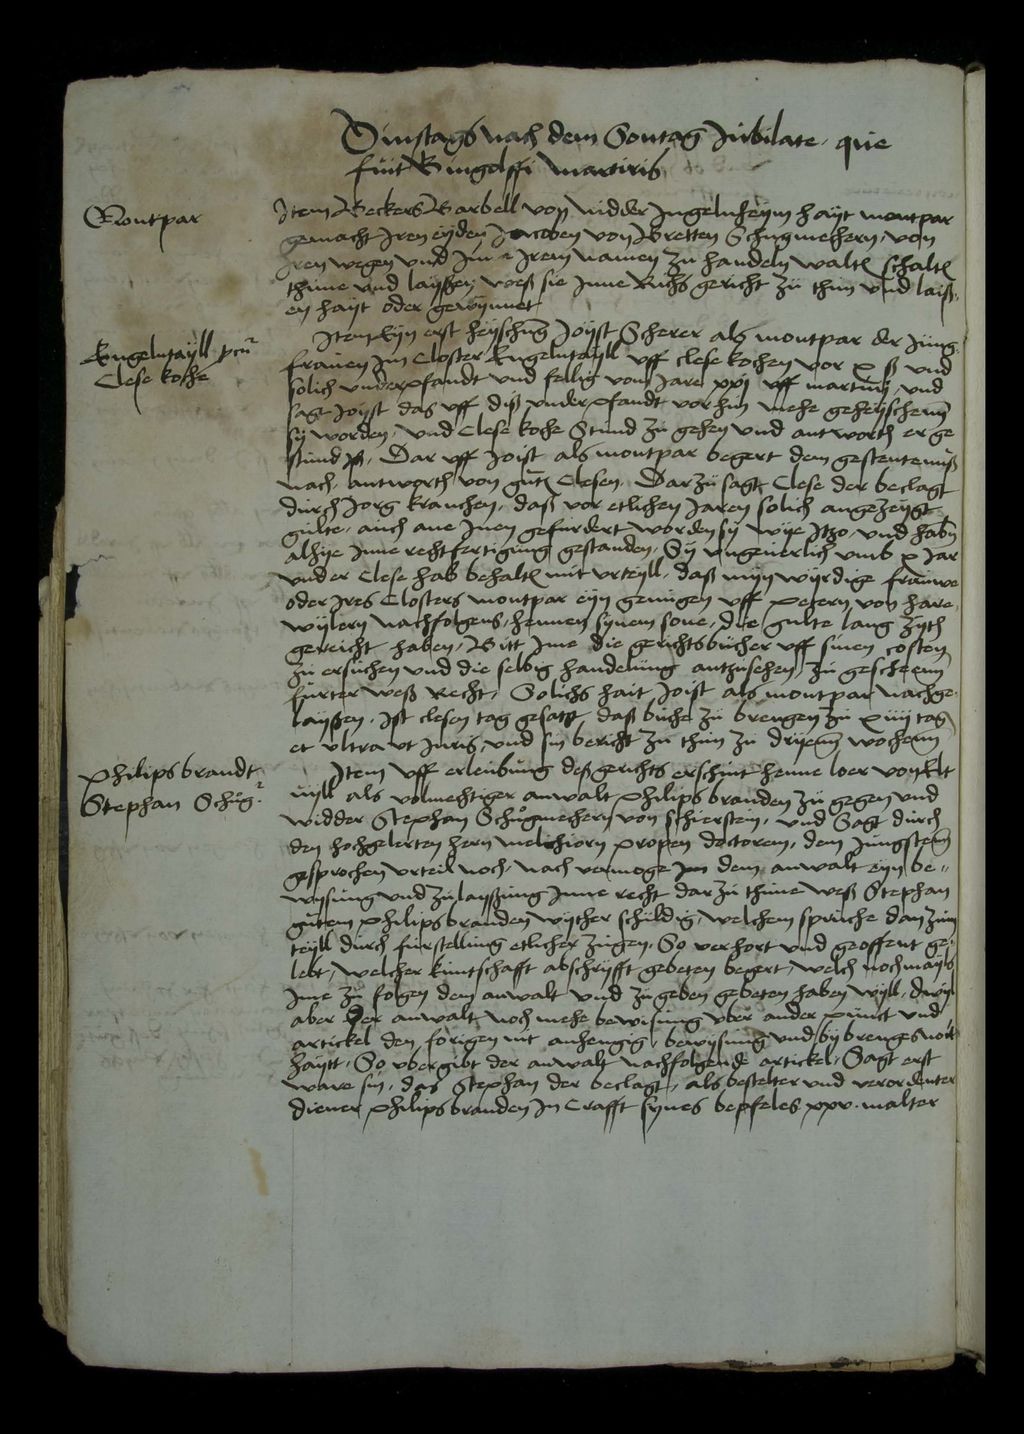 Dinstags nach dem Sontag Jubilate, que
fuit Gingolffi martiris
Montpar
Item Beckers Barbell von Nidder Ingelnheym hayt montpar
gemacht Iren eyden Jacoben von Bretten Schugmechern, von
Iren wegen vnd Inn Irem namen zu handeln walten schalten
thune vnd layssen, weß sie Inne Richs gericht zu thun vnd laiß-
en hayt oder gewynnet
Engelntayll
Clese koche
Item Eyn erst heyschung Joyst Scherer als montpar der Jung-
frauen Im Closter Engelntayll vff clese kochen vor x ß vnd
solich vnderpfandt vnd fellig vom Jare xxj vff martinj, vnd
sagt Joyst das vff diß vnderpfandt vorhin mehe geheyschenn
sy worden, vnd Clese koche stund zu gehen vnd antworth er ge
stund, Dar vff Joist als montpar begert dem gestentenuß
nach, antworth von guten Clesen. Dar zu sagt Clese der beclagt
durch Jorg kranchen, daß vor etlichen Jaren solich angezeygt
gulte, auch ane Inen gefurdert worden sy wye Itzo, vnd habn
alhye Inne rechtfertigung gestanden, Sy vngeuerlich vmb x Jar
vnd er Clese hab behalten mit vrteyll, daß myn wyrdige frauwe
oder Ires Closters montpar eyn genugen vff Petern von Hare
wylern nachfolgens, hennen synem sone, die gulte lang zyth
gereicht haben, Bitt Ime die gerichtsbucher vff sinen costen
zu ersuchen vnd die selbig handelung antzusehen, zu gescheenn
furter weß Recht, Solichs hait Joist als montpar nachge-
layssen. Ist clesen tag gesatzt, daß buche zu brengen zu xiiij tag
et vltra vt Juris, vnd sin bericht zu thun zu dryenn wochenn
Philips brandt
Stephan Schug
Item vff erleubung deß gerichts erschint henne loer von
als volmechtiger anwalt Philips branden zu gegen vnd
widder Stephan Schugmechern von schierstein, vnd Sagt durch
den hochgelerten hern melchiorn Propen doctorem, dem Jungstenn
gesprochen vrteil noch, nach vermoge Im dem anwalt eyn be-
wysung vnd zulayssung Inne recht dar zu thune weß Stephan
gutem Philips branden wyther schuldig, welchem spruche dan zum
teyll durch furstellung etlicher zugen, So verhort vnd geoffent ge-
lebt, welcher kuntschafft abschryfft gebeten begert, welch nochmayls
Ime zu folgen dem anwalt vnd zu geben gebeten haben wyll,
aber Der anwalt noch mehe bewisung vber ander punct vnd
artickel den forigen nit anhengig, bewysung vnd bybrenges noit
haytt, So vbergibt der anwalt nachfolgende artickel, Sagt erst
ware sin, das Stephan der beclagt, als bestelter vnd verordenter
diener Philips branden In Crafft synes bepfeles xxv. malter